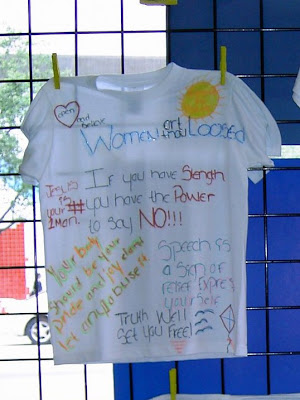 Women art thou Loosed
If you have Stength
you have the Power
to say NO!!!
Jesus is
your #1
Man.
Your body
should be your
pride and joy don't
let any abuse it
Speech is
a sign of
relief Express
yourself
Truth Well
Set you Free!